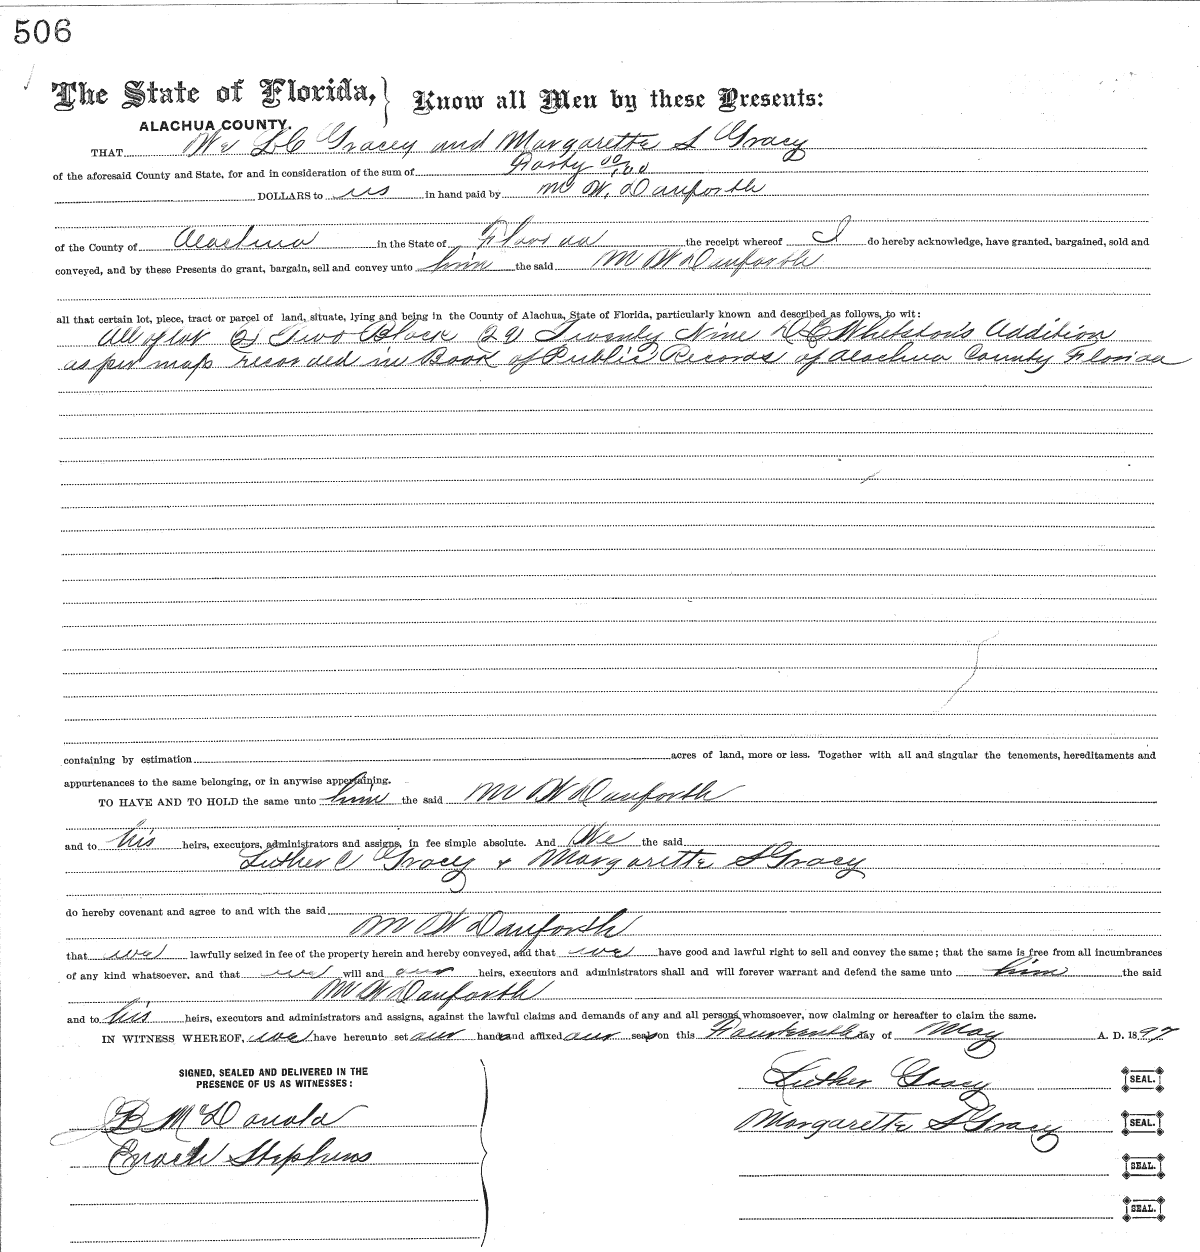 506
The State of Florida, } Know all Men by these Presents:
ALACHUA COUNTY.
THAT We L C Gracey and Margarette S Gracy
of the aforesaid County and State, for and in consideration of the sum of Forty 00/100
DOLLARS to us in hand paid by M W. Danforth
of the County of Alachua in the State of Florida the receipt whereof I do hereby acknowledge, have granted, bargained, sold and
conveyed, and by these Presents do grant, bargain, sell and convey unto him the said M W Danforth
all that certain lot, piece, tract or parcel of land, situate, lying and being in the County of Alachua, State of Florida, particularly known and described as follows, to wit:
All of lot 2 Two Block 29 Twenty Nine Addition
as per map recorded in Book of Public Records of Alachua County Florida
containing by estimation acres of land, more or less. Together with all and singular the tenements, hereditaments and
appurtenances to the same belonging, or in anywise appertaining.
TO HAVE AND TO HOLD the same unto him the said M W Danforth
and to his heirs, executors, administrators and assigns, in fee simple absolute. And We the said
Luther C Gracey & Margarette S Gracy
do hereby covenant and agree to and with the said
M W Danforth
that we lawfully seized in fee of the property herein and hereby conveyed, and that we have good and lawful right to sell and convey the same; that the same is free from all incumbrances
of any kind whatsoever, and that we will and our heirs, executors and administrators shall and will forever warrant and defend the same unto him the said
M W Danforth
and to his heirs, executors and administrators and assigns, against the lawful claims and demands of any and all persons whomsoever, now claiming or hereafter to claim the same.
IN WITNESS WHEREOF, we have hereunto set our hands and affixed our seals on this Fourteenth day of May A. D. 1897
SIGNED, SEALED AND DELIVERED IN THE
PRESENCE OF US AS WITNESSES:
Luther Gracy SEAL.
B McDonald
Margarette S Gracy SEAL.
Enoch Stephens
SEAL.
SEAL.